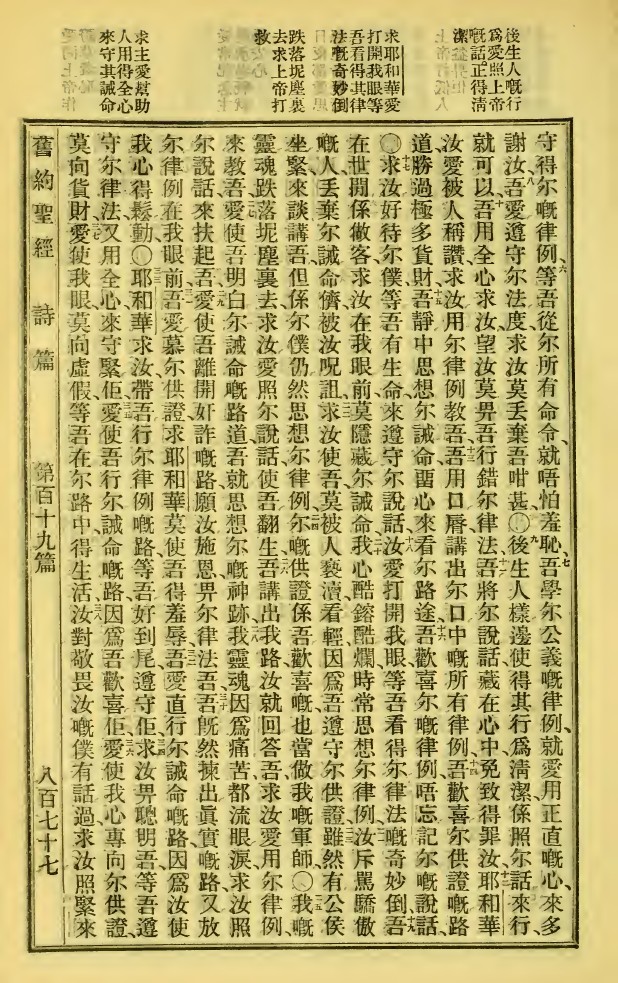 後生人嘅行
爲愛照上帝
嘅話正得淸
潔
求耶和華愛
打開我眼等
吾看得其律
法嘅奇妙倒
跌落坭塵裏
去求上帝打
救
求主愛幫助
人用得全心
來守其誡命
守得尔嘅律例、六等吾從尔所有命令、就唔怕羞恥、七吾學尔公義嘅律例、就愛用正直嘅心、來多
謝汝、八吾愛遵守尔法度、求汝莫丟棄吾咁甚、〇九後生人樣邊使得其行爲淸潔、係照尔話來行、
就可以、十吾用全心求汝、望汝莫畀吾行錯尔律法、十一吾將尔說話藏在心中、免致得罪汝、十二耶和華
汝愛被人稱讚、求汝用尔律例教吾、十三吾用口唇講出尔口中嘅所有律例、十四吾歡喜尔供證嘅路
道、勝過極多貨財、十五吾靜中思想尔誡命、畱心來看尔路途、十六吾歡喜尔嘅律例、唔忘記尔嘅說話、
〇十七求汝好待尔僕、等吾有生命、來遵守尔說話、十八汝愛打開我眼、等吾看得尔律法嘅奇妙倒、十九吾
在世間係做客、求汝在我眼前、莫隱藏尔誡命、二十我心酷鎔酷爛、時常思想尔律例、二一汝斥罵驕傲
嘅人、丟棄尔誡命儕、被汝呪詛、二二求汝使吾莫被人褻瀆看輕、因爲吾遵守尔供證、二三雖然有公侯
坐緊來談講吾、但係尔僕仍然思想尔律例、二四尔嘅供證、係吾歡喜嘅、也當做我嘅軍師、〇二五我嘅
靈魂跌落坭塵裏去、求汝愛照尔說話、使吾翻生、二六吾講出我路、汝就回答吾、求汝愛用尔律例、
來教吾、二七愛使吾明白尔誡命嘅路道、吾就思想尔嘅神跡、二八我靈魂因爲痛苦都流眼淚、求汝照
尔說話來扶起吾、二九愛使吾離開奸詐嘅路、願汝施恩畀尔律法吾、三十吾旣然揀出眞實嘅路、又放
尔律例在我眼前、三一吾愛慕尔供證、求耶和華莫使吾得羞辱、三二吾愛直行尔誡命嘅路、因爲汝使
我心得鬆動、〇三三耶和華求汝帶吾行尔律例嘅路、等吾好到尾遵守佢、三四求汝畀聰明吾、等吾遵
守尔律法、又用全心來守緊佢、三五愛使吾行尔誡命嘅路、因爲吾歡喜佢、三六愛使我心專向尔供證、
莫向貨財、三七愛使我眼莫向虛假、等吾在尔路中得生活、三八汝對敬畏汝嘅僕、有話過、求汝照緊來
舊約聖經　詩篇　第百十九篇　八百七十七